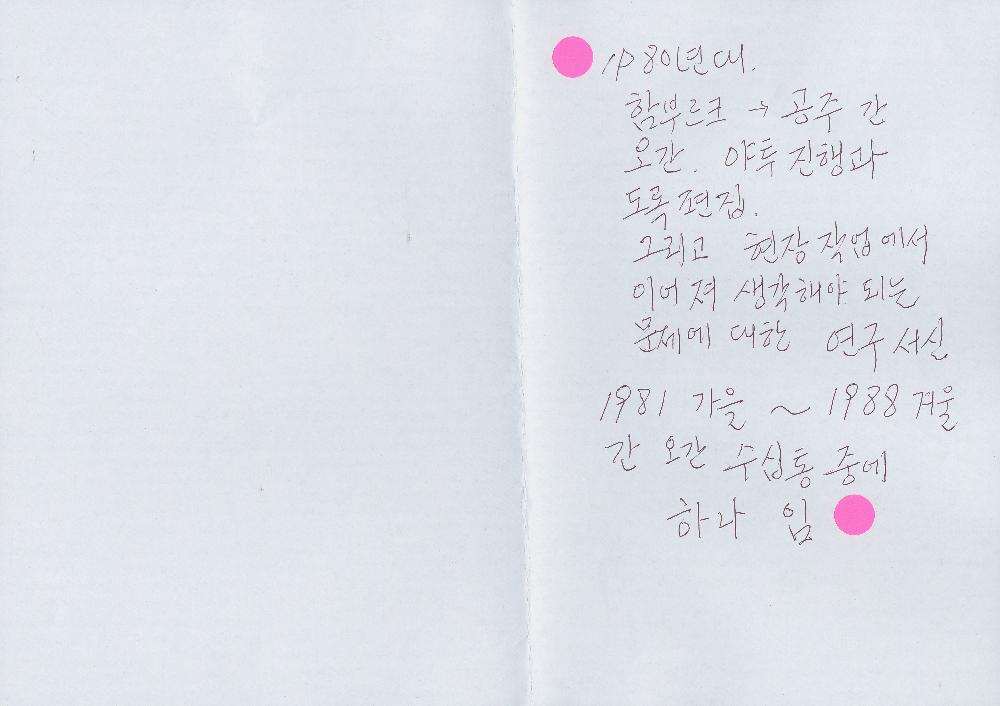 1980년대.
함부르크 →공주 간
오간. 야투 진행과
도록 편집.
그리고 현장 작업에서
이어져 생각해야 되는
문제에 대한 연구 서신
1981 가을 ~ 1988 겨울
간 오간 수십통 중에
하나 임